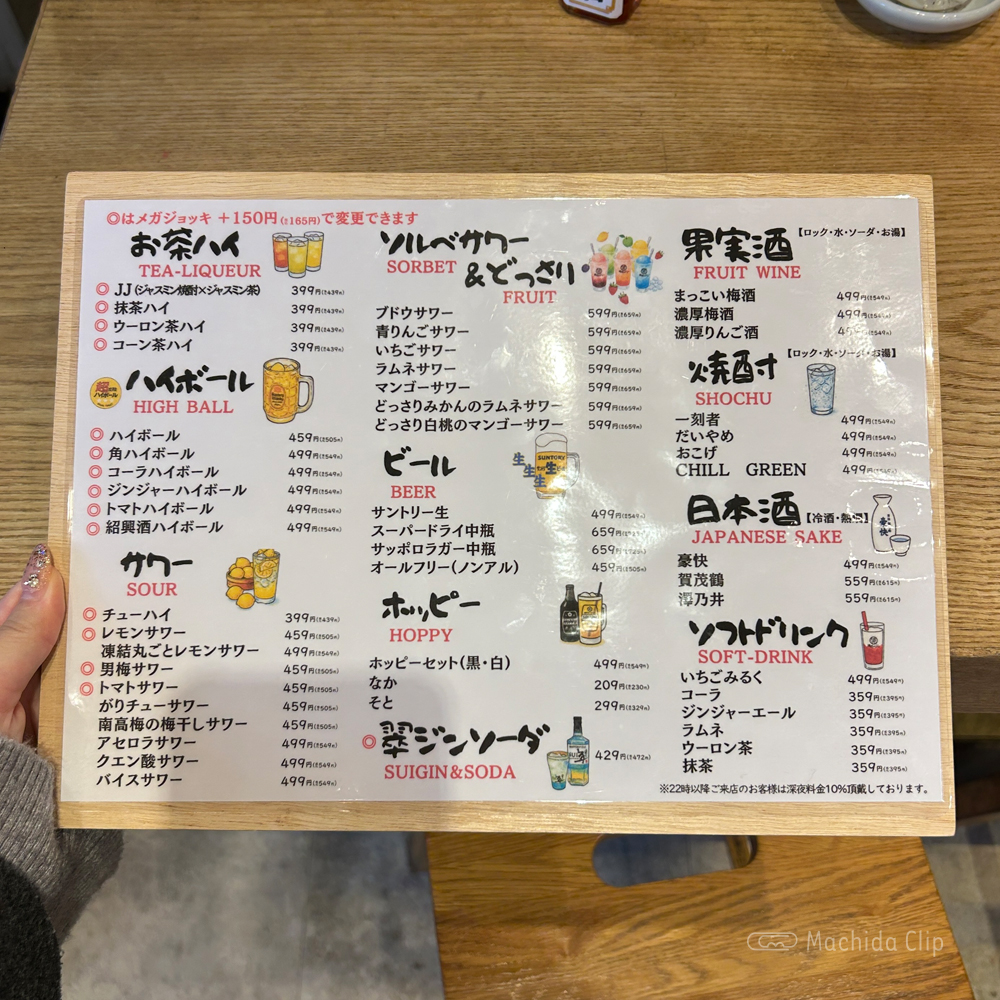 ◎はメガジョッキ +150円(込165円)で変更できます
お茶ハイ
TEA-LIQUEUR
◎ JJ(ジャスミン焼酎×ジャスミン茶) 399円(込439円)
◎ 抹茶ハイ 399円(込439円)
◎ ウーロン茶ハイ 399円(込439円)
◎ コーン茶ハイ 399円(込439円)
ハイボール
HIGH BALL
◎ ハイボール 459円(込505円)
◎ 角ハイボール 499円(込549円)
◎ コーラハイボール 499円(込549円)
◎ ジンジャーハイボール 499円(込549円)
◎ トマトハイボール 499円(込549円)
◎ 紹興酒ハイボール 499円(込549円)
サワー
SOUR
◎ チューハイ 399円(込439円)
◎ レモンサワー 459円(込505円)
凍結丸ごとレモンサワー 499円(込549円)
◎ 男梅サワー 459円(込505円)
◎ トマトサワー 459円(込505円)
がりチューサワー 459円(込505円)
南高梅の梅干しサワー 459円(込505円)
アセロラサワー 499円(込549円)
クエン酸サワー 499円(込549円)
バイスサワー 499円(込549円)
ソルベサワー
SORBET
&どっさり
FRUIT
ブドウサワー 599円(込659円)
青りんごサワー 599円(込659円)
いちごサワー 599円(込659円)
ラムネサワー 599円(込659円)
マンゴーサワー 599円(込659円)
どっさりみかんのラムネサワー 599円(込659円)
どっさり白桃のマンゴーサワー 599円(込659円)
ビール
BEER
SUNTORY
生
生
生
生
サントリー生 499円(込549円)
スーパードライ中瓶 659円
サッポロラガー中瓶 659円
オールフリー(ノンアル) 459円(込505円)
ホッピー
HOPPY
ホッピーセット(黒・白) 499円(込549円)
なか 209円(込230円)
そと 299円(込329円)
◎ 翠ジンソーダ 429円(込472円)
SUIGIN&SODA
果実酒【ロック・水・ソーダ・お湯】
FRUIT WINE
まっこい梅酒 499円(込549円)
濃厚梅酒 499円(込549円)
濃厚りんご酒 499円(込549円)
焼酎【ロック・水・ソーダ・お湯】
SHOCHU
一刻者 499円(込549円)
だいやめ 499円(込549円)
おこげ 499円(込549円)
CHILL GREEN 499円(込549円)
日本酒【冷酒・熱燗】
JAPANESE SAKE
豪快
豪快 499円(込549円)
賀茂鶴 559円(込615円)
澤乃井 559円(込615円)
ソフトドリンク
SOFT-DRINK
いちごみるく 499円(込549円)
コーラ 359円(込395円)
ジンジャーエール 359円(込395円)
ラムネ 359円(込395円)
ウーロン茶 359円(込395円)
抹茶 359円(込395円)
※22時以降ご来店のお客様は深夜料金10%頂戴しております。
Machida Clip